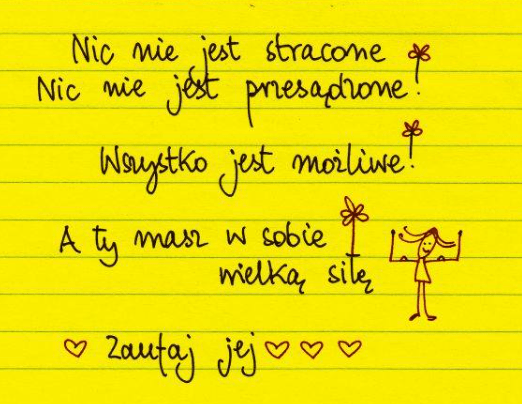 Nic nie jest stracone
Nic nie jest przesądzone!
Wszystko jest możliwe!
A ty masz w sobie
wielką siłę
Zaufaj jej